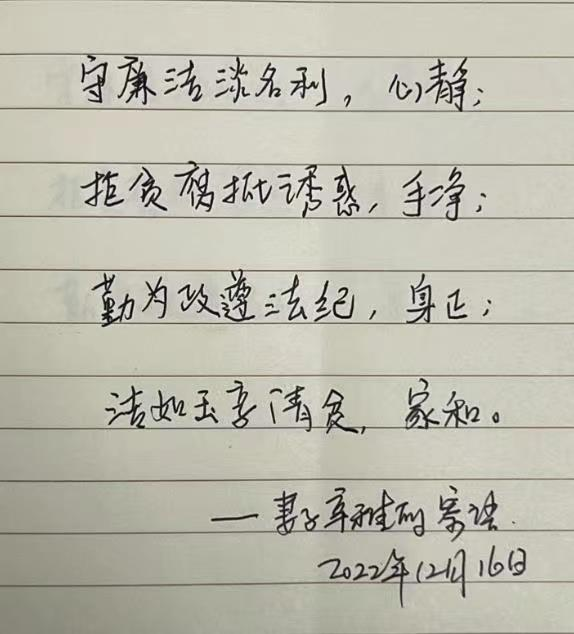 守廉洁淡名利，心静；
拒贪腐抵诱惑，手净；
勤为政遵法纪，身正；
洁如玉享清贫，家和。
——妻子辛雅的寄语
2022年12月16日